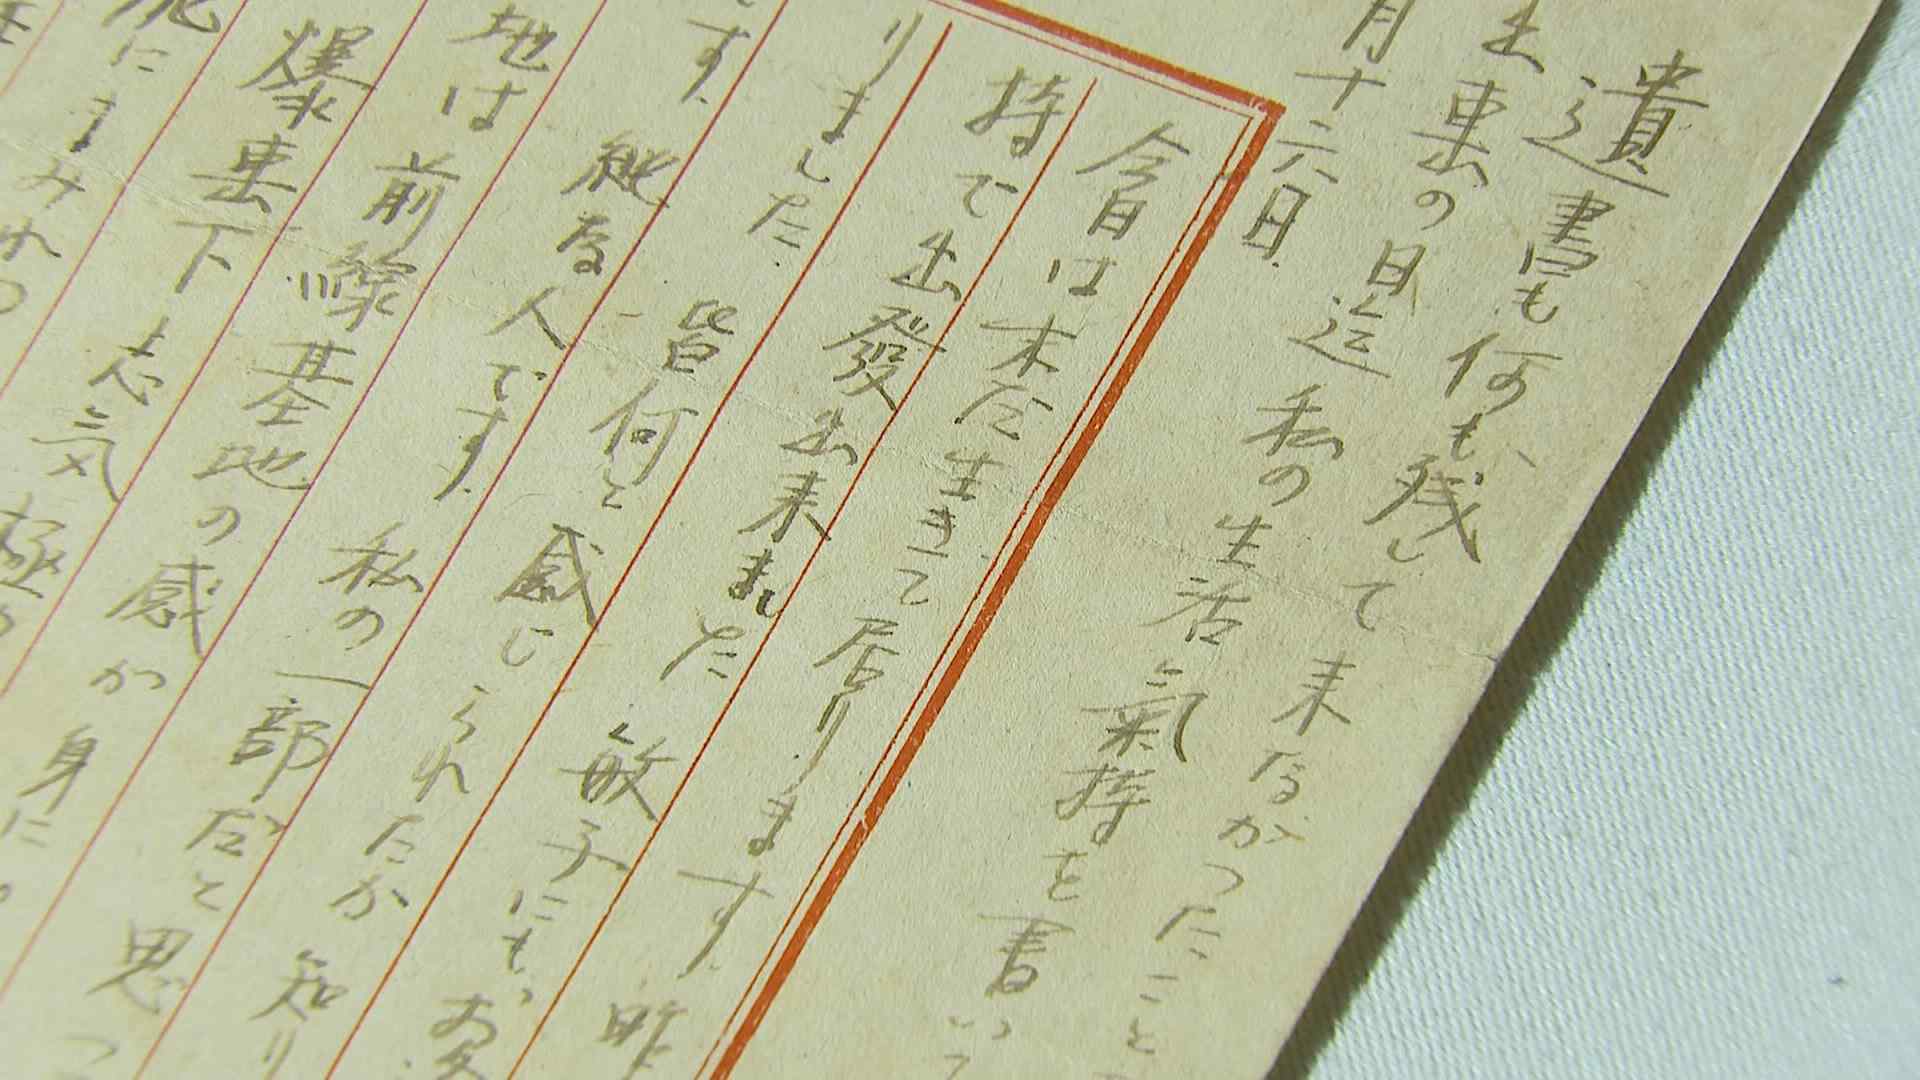 遺書も何も残して来なかつたこと
出撃の日迄 私の生活 氣持を書いて
月十六日.
今日は未だ生きて居ります 昨
持で出發出来ました 敏子にもお
りました. 皆何と感じられたか 知り
です. 純な人です. 私の一部だと思つ
地は前線基地の感が身に
爆撃下 志気極
にまみれつ